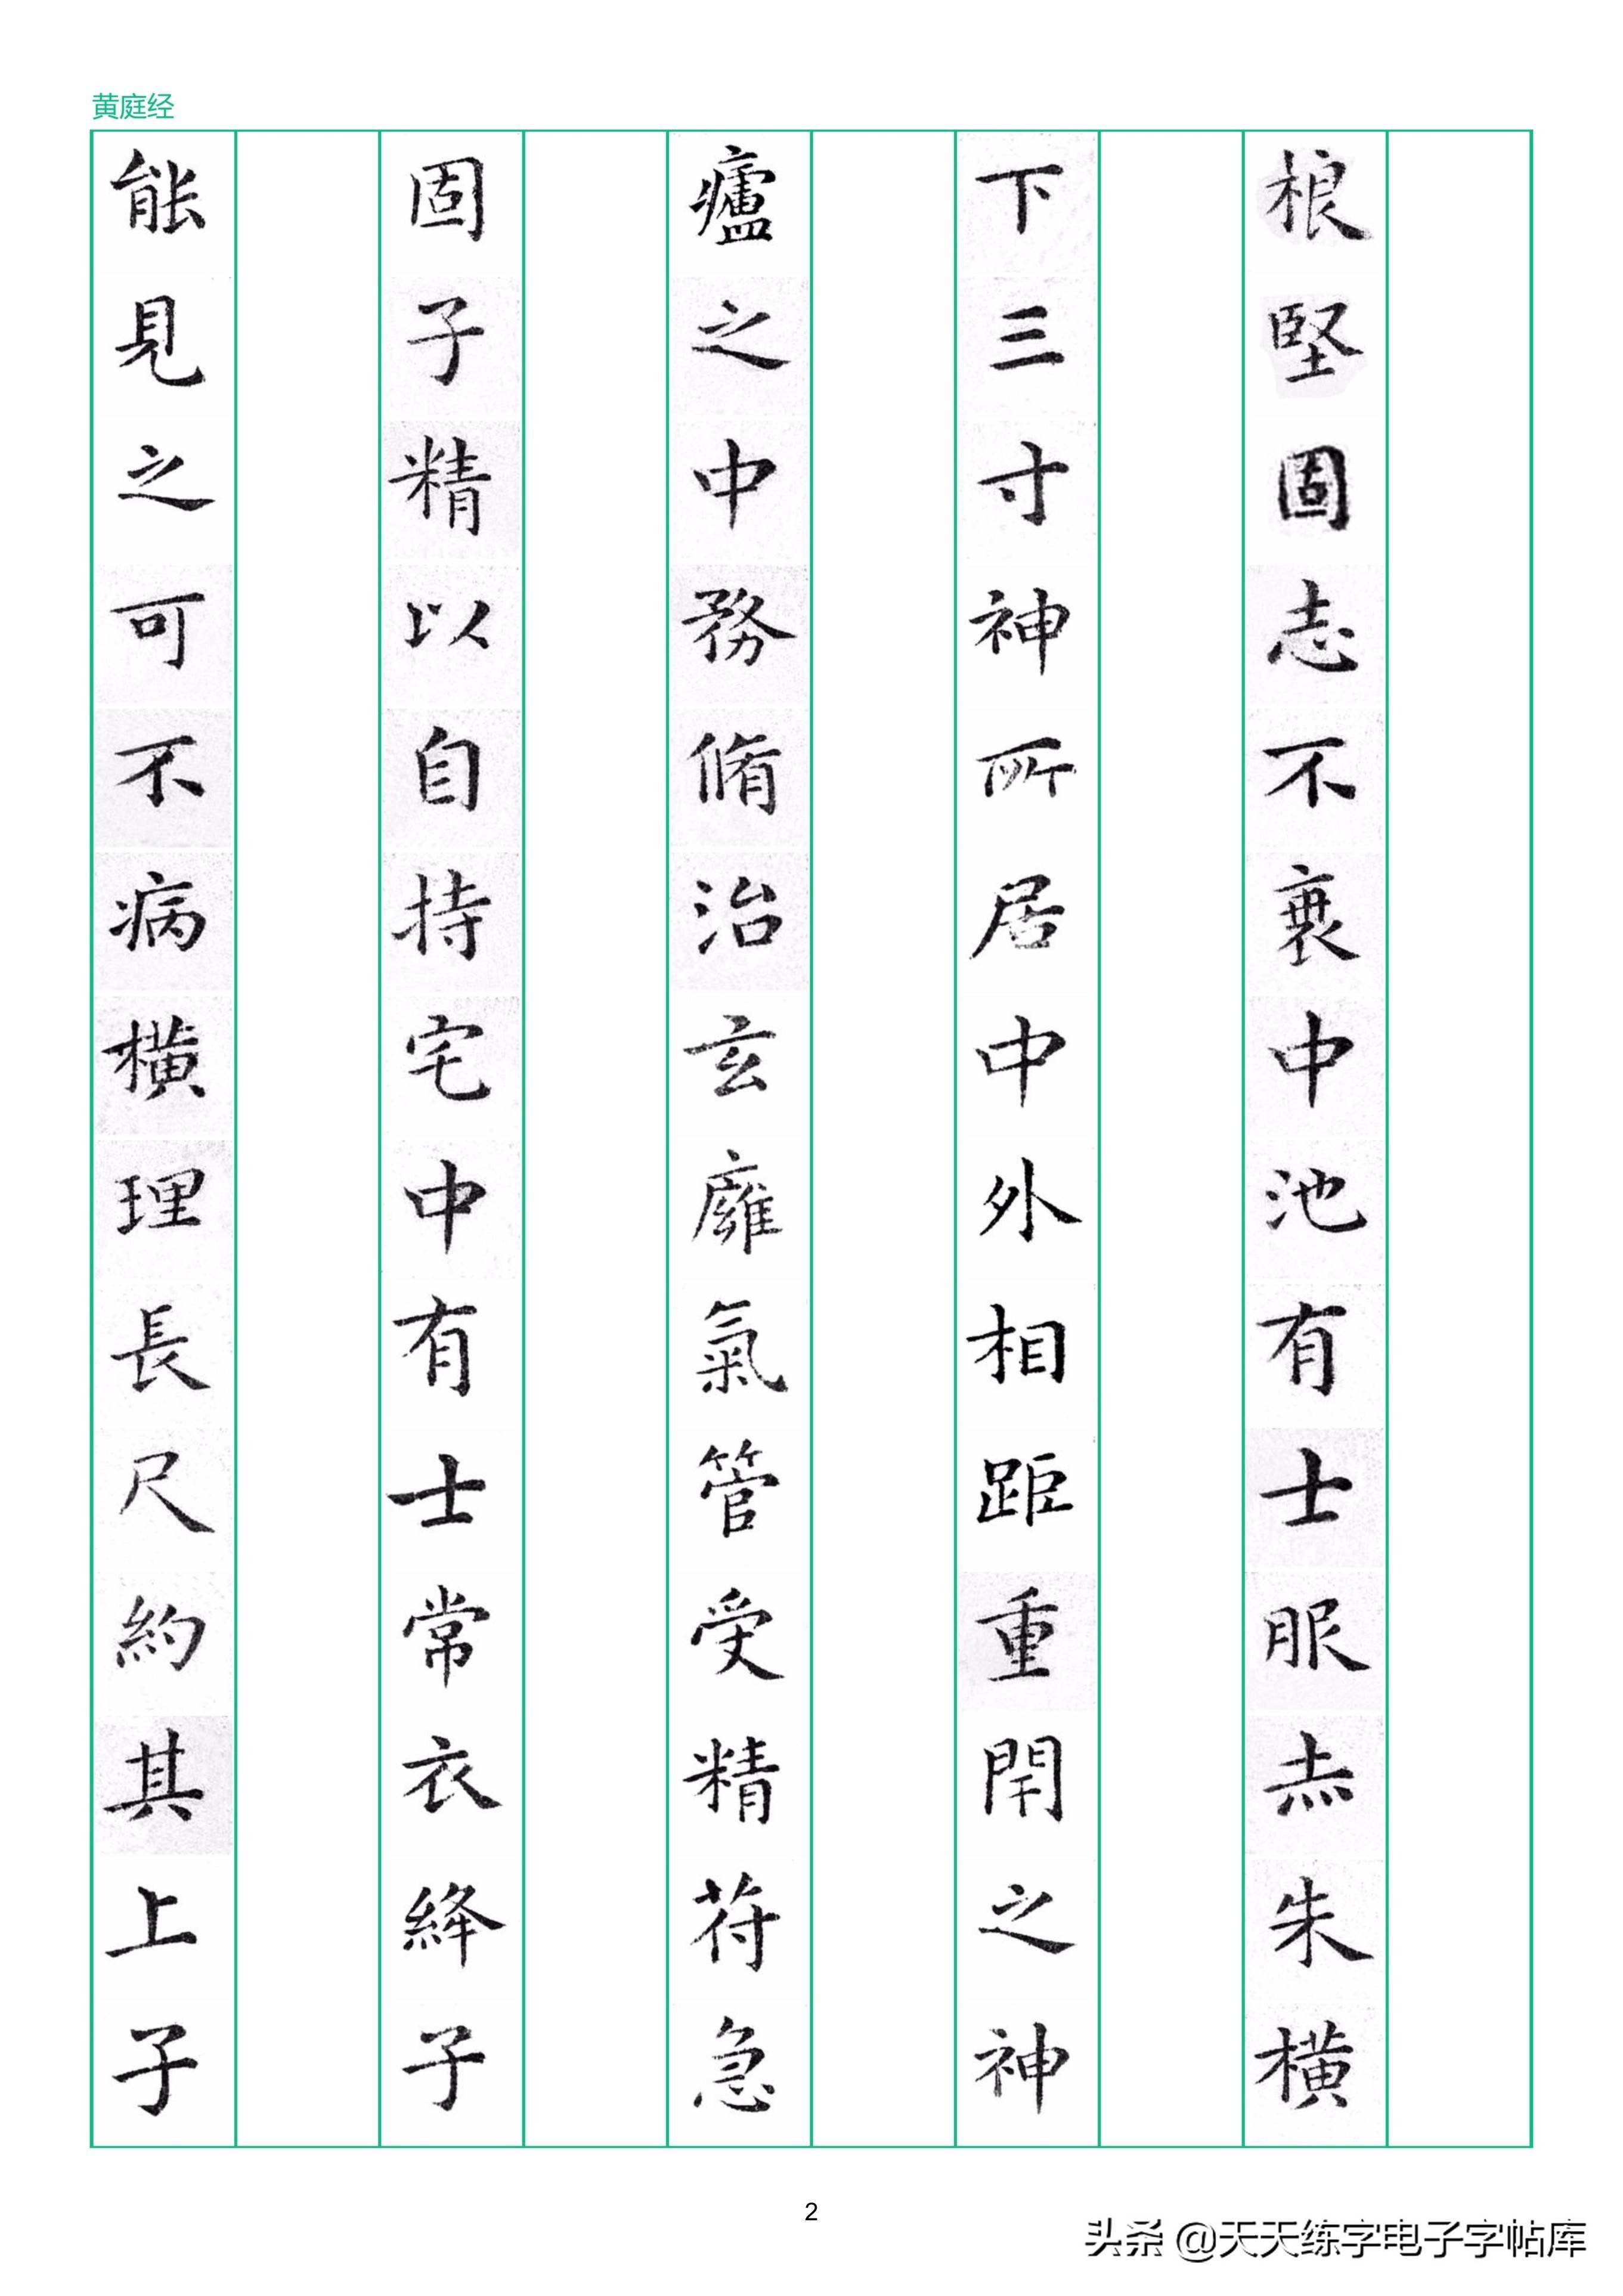 黄庭经
根堅固志不衰中池有士服赤朱橫
下三寸神所居中外相距重閇之神
廬之中務脩治玄膺氣管受精苻急
固子精以自持宅中有士常衣絳子
能見之可不病橫理長尺約其上子
2
头条 @天天练字电子字帖库